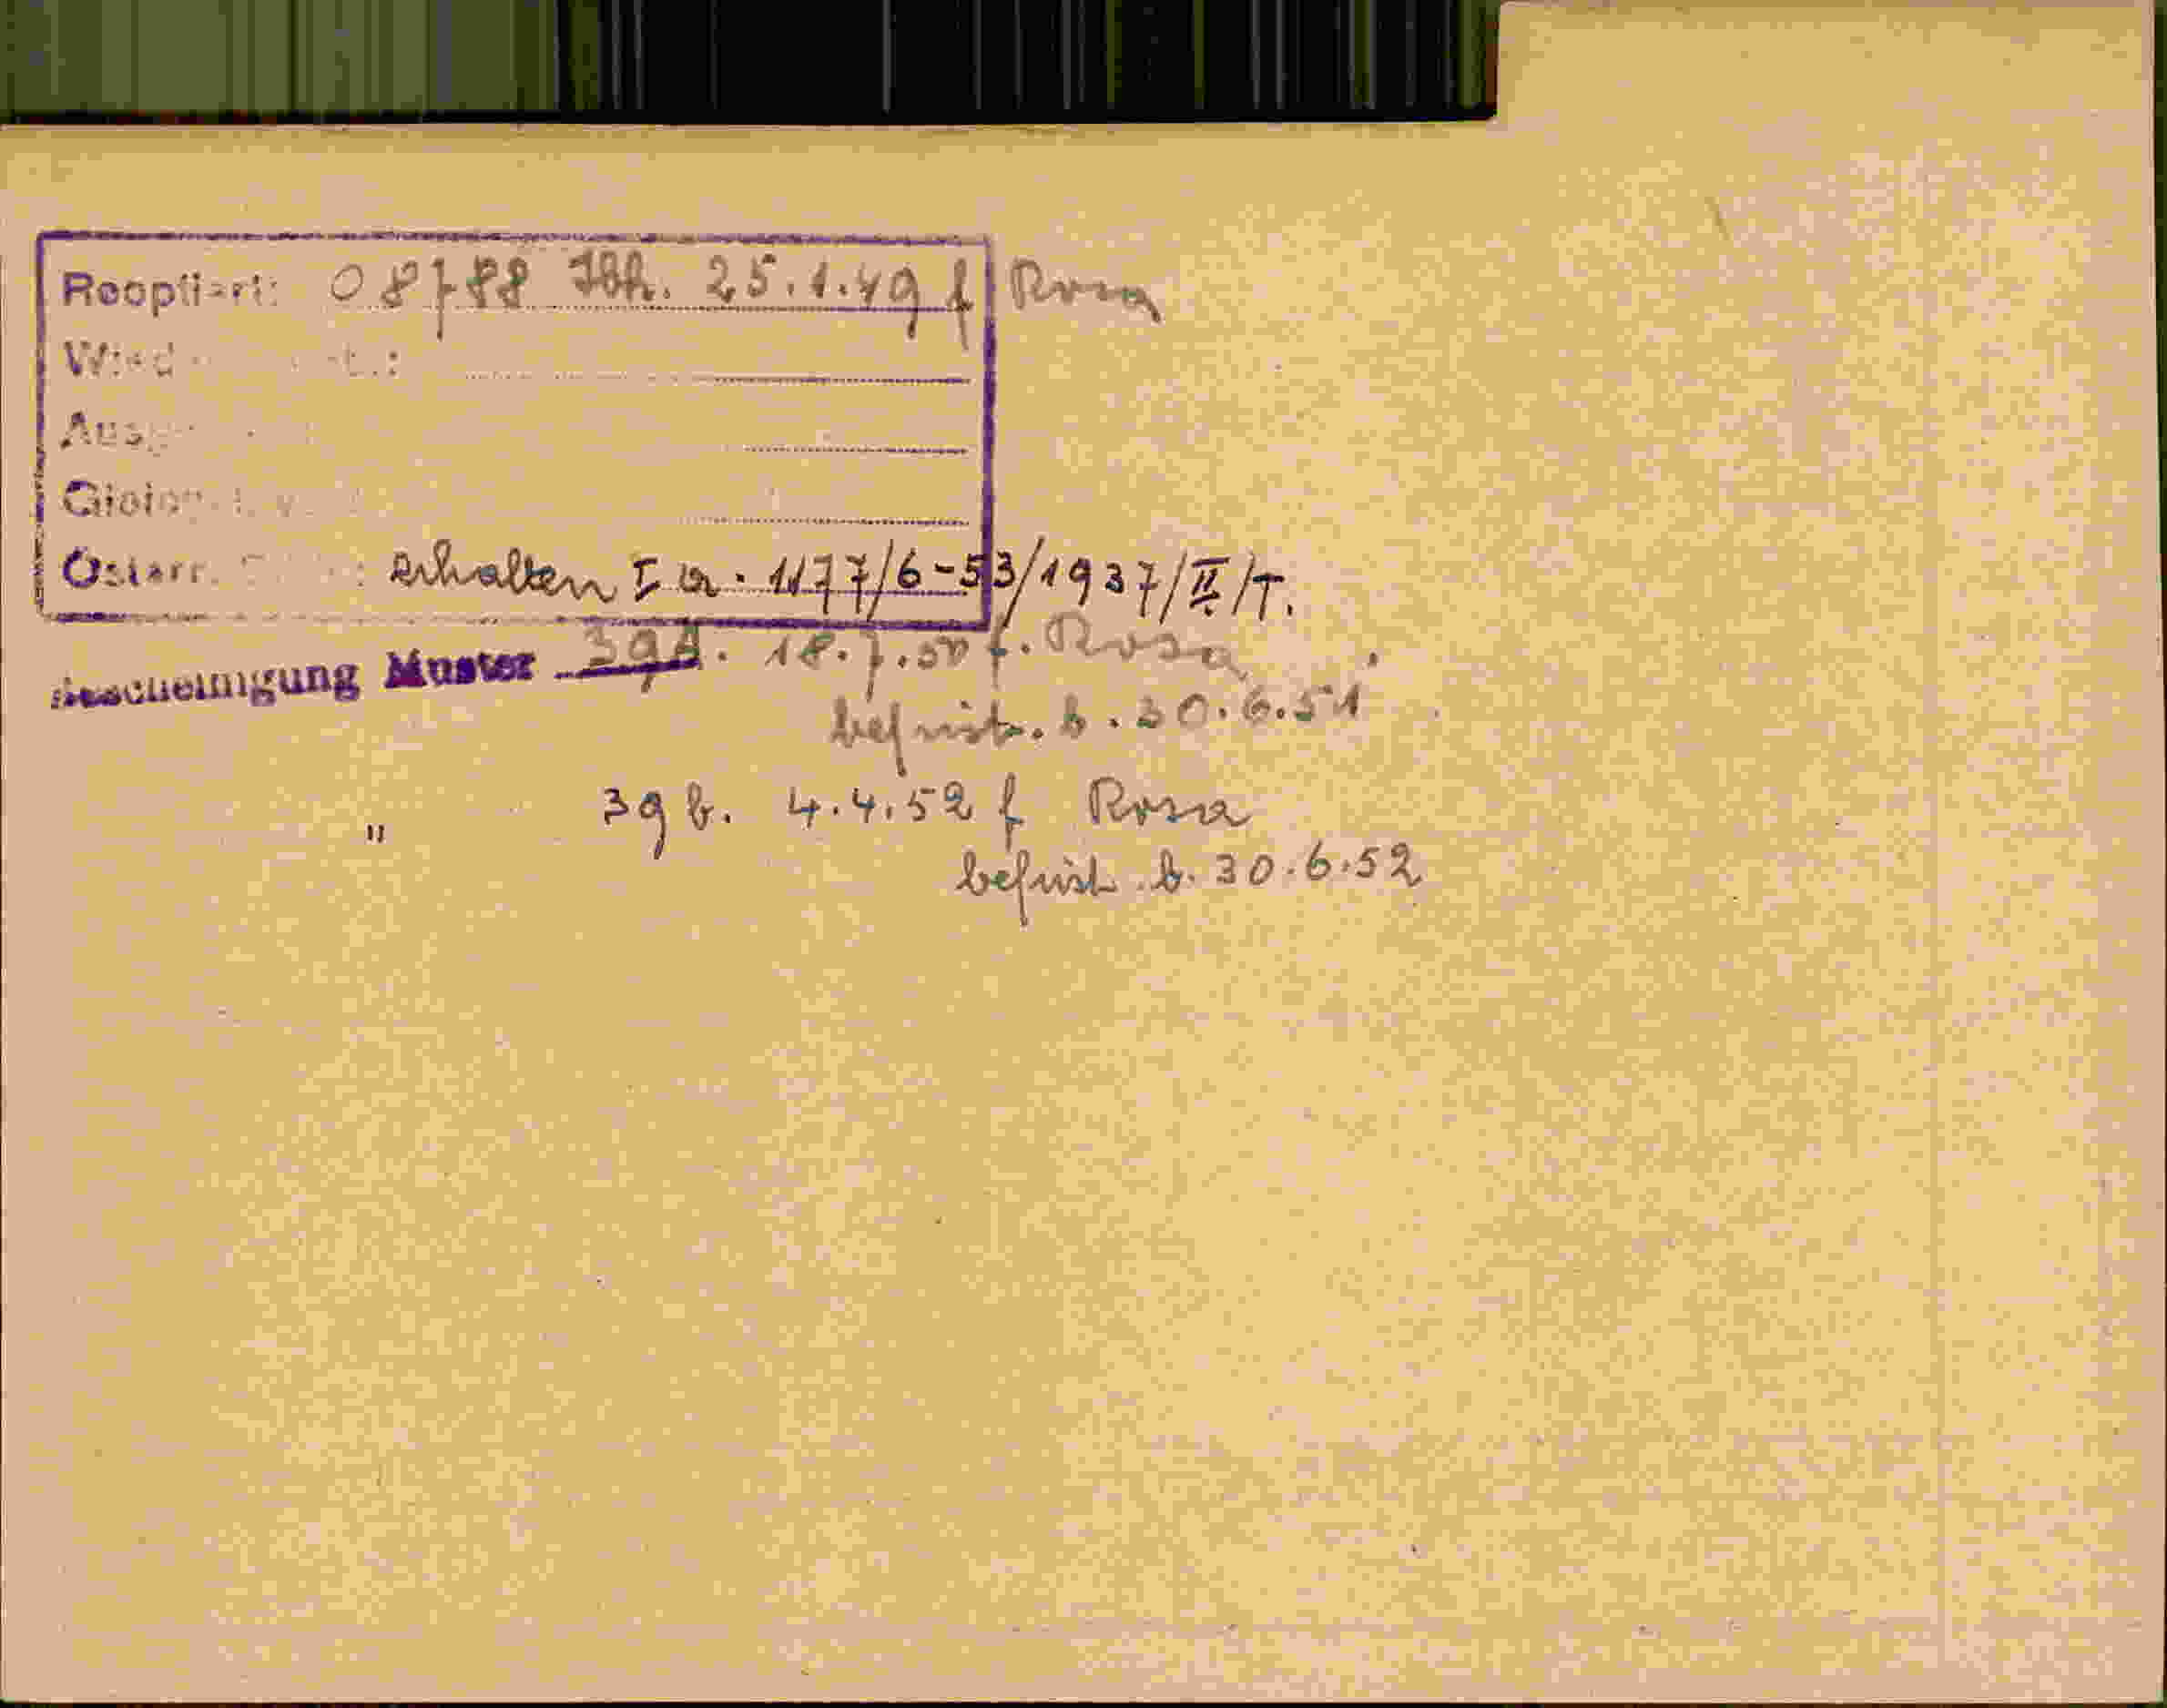 Reoptiert: 08788 Ibk. 25.1.49 f Rosa
Österr. erhalten I a. 1177/6-53/1937/II/T.
Bescheinigung Muster 39A. 18.7.50 f. Rosa
befrist. b. 30.6.51
" 39 b. 4.4.52 f Rosa
befrist. b. 30.6.52